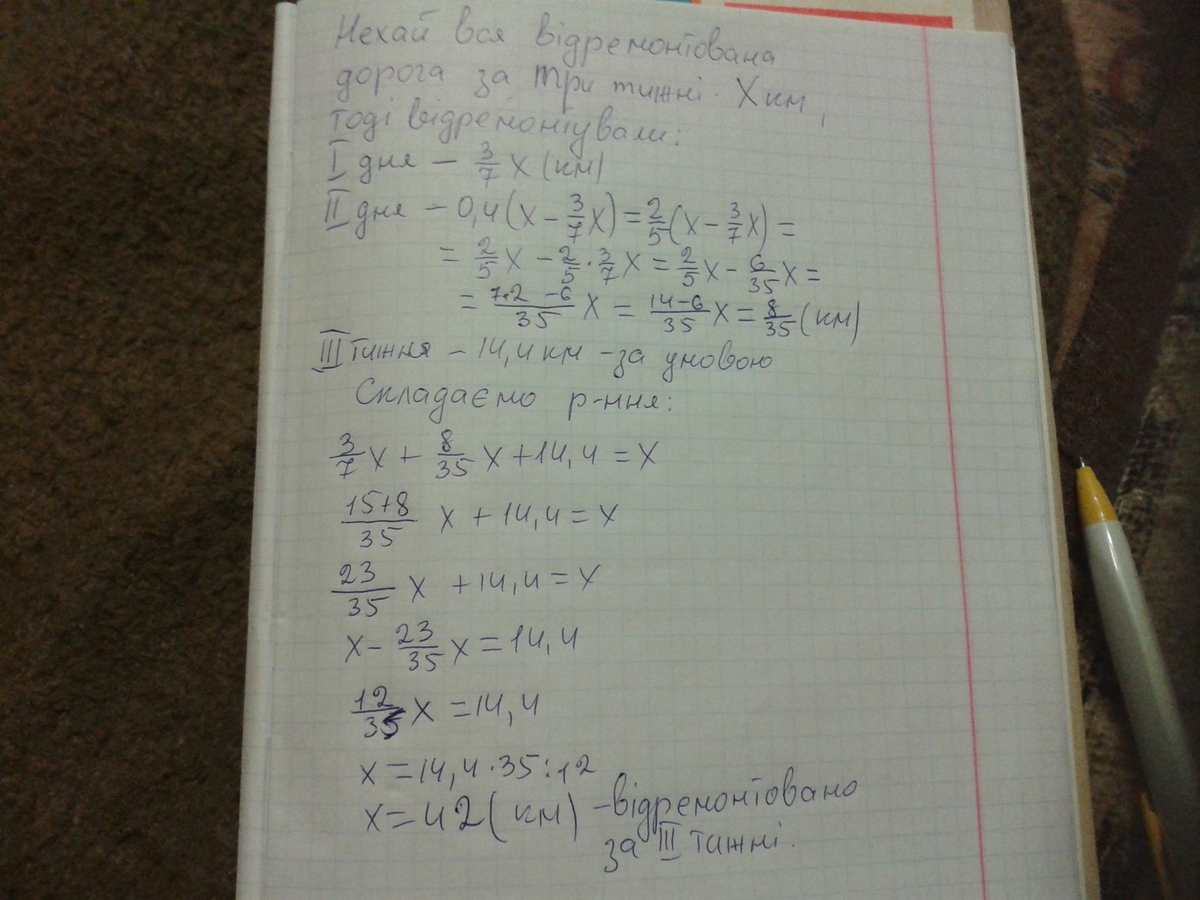 Нехай вся відремонтована
дорога за три тижні X км,
тоді відремонтували:
I дня – 3/7 x (км)
II дня – 0,4(x – 3/7x) = 2/5(x – 3/7x) =
= 2/5x – 2/5 · 3/7x = 2/5x – 6/35x =
= 7·2 – 6/35 x = 14–6/35 x = 8/35 (км)
III тижня – 14,4 км – за умовою
Складаємо р-ння:
3/7x + 8/35x + 14,4 = x
15+8/35 x + 14,4 = x
23/35 x + 14,4 = x
x – 23/35x = 14,4
12/35x = 14,4
x = 14,4·35:12
x = 42 (км) – відремонтовано
за III тижні.